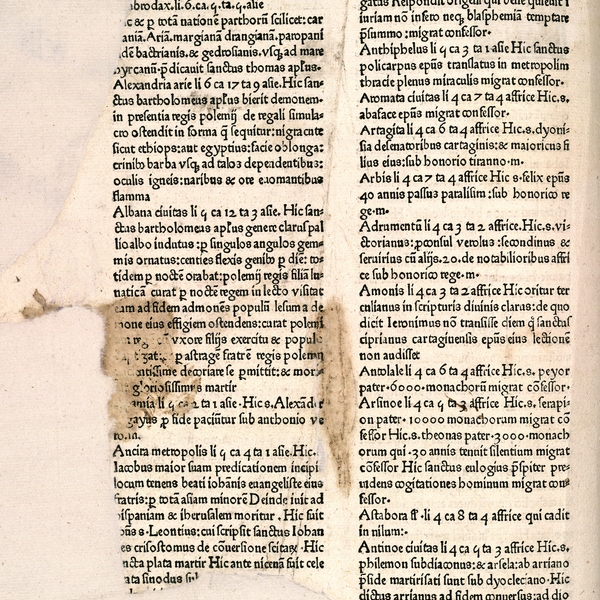 hic & ꝑ totā nationē parthorū scilicet: car
ania. Aria. margianā drangianā. paropani
dē bactrianis. & gedrosianis. vsq̨ ad mare
hyrcanū. ꝑdicauit sanctus thomas apl'us.
Alexandria arie li 6 ca 17 ta 9 asie. Hic san-
ctus bartholomeus apl'us bierit demonem.
in presentia regis polemij de regali simula-
cro ostendit in forma q̄ sequitur: nigrante
sicut ethiops: aut egyptius: facie oblonga:
crinito barba vsq̨ ad talos dependentibus:
oculis igneis: naribus & ore euomantibus
flamma
Albana ciuitas li ç ca 12 ta 3 asie. Hic san-
ctus bartholomeus apl'us genere clarus pal
lio albo indutus: ꝑ singulos angulos gem-
mis ornatus: centies flexis genito ꝑ die: to-
tidem ꝑ noctē orabat: polemij regis filiā lu-
naticā curat ꝑ noctē regem in lecto visitat
eum ad fidem admonēs populū lesum a de
mone eius effigiem ostendens: curat polemij
vxore filijs exercitu & populo
ꝑ astragē fratrē regis polemij
decoriare se ꝑmittit: & mori-
gloriosissimus martir
li ç ca 2 ta 1 asie. Hic s. Alexāder
ꝑ fide paciūtur sub anthonio ve
ro. m.
Ancira metropolis li ç ca 4 ta 1 asie. Hic.
Iacobus maior suam predicationem incipi
locum tenens beati iohānis euangeliste eius
fratris: ꝑ totā asiam minorē Deinde iuit ad
hispaniam & iherusalem moritur. Hic fuit
s. Leontius: cui scripsit sanctus Iohan
es crisostomus de cōuersione scitarꝝ. Hic
sancta plata martir Hic ante nicenā fuit cele
rata sinodus
iuriam nō infero neq̨ blasphemiā temptare
p̄summo: migrat confessor.
Anthiphelus li ç ca 3 ta 1 asie Hic sanctus
policarpus ep̄us translatus in metropolim
thracie plenus miraculis migrat confessor.
Aromata ciuitas li 4 ca 7 ta 4 affrice Hic. s.
abaface ep̄us migrat confessor.
Artagita li 4 ca 6 ta 4 affrice Hic. s. dyoni-
sia defenatoribus cartaginis: & maioricus fi
lius eius: sub honorio tiranno. m.
Arbis li 4 ca 7 ta 4 affrice Hic s. felix ep̄us
40 annis passus paralisim: sub honorico re
ge. m.
Adrumentū li 4 ca 3 ta 2 affrice. Hic. s. vi-
ctorianus: ꝓconsul verolus: secundinus &
seruirius cū alijs. 20. de notabilioribus affri
ce sub honorico rege. m.
Amonis li 4 ca 3 ta 2 affrice Hic oritur ter
culianus in scripturis diuinis clarus: de quo
dicit Ieronimus nō transisse diem q̄ sanctus
ciprianus cartaginensis ep̄us eius lectionē
non audisset
Antolale li 4 ca 6 ta 4 affrice Hic. s. peyor
pater. 6000. monachorū migrat cōfessor.
Arsinoe li 4 ca ç ta 3 affrice Hic. s. serapi-
on pater. 10000 monachorum migrat cō
fessor Hic. s. theonas pater. 3000. monach
orum qui. 30 annis tenuit silentium migrat
cōfessor Hic sanctus eulogius p̄spiter pre-
uidens cogitationes hominum migrat con-
fessor.
Astabora fl'. li 4 ca 8 ta 4 affrice qui cadit
in nilum:.
Antinoe ciuitas li 4 ca ç ta 3 affrice Hic. s.
philemon subdiaconus: & arsela: ab arriano
p̄side martirisati sunt sub dyocleciano. Hic
dictus arrianus ad fidem conuersus: ad dio